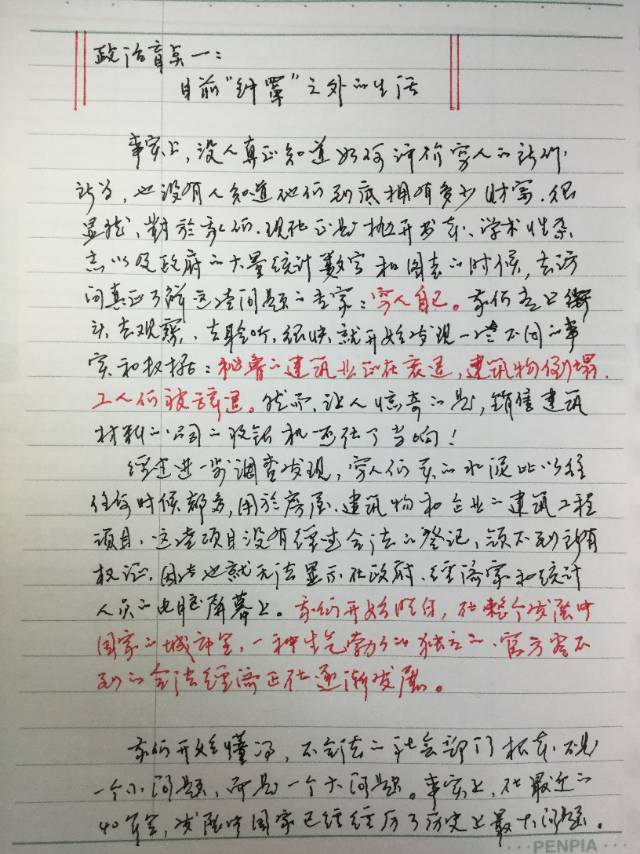 政治盲点一：
目前“钟罩”之外的生活
事实上，没人真正知道如何评价穷人的所作
所为，也没有人知道他们到底拥有多少财富。很
显然，對於我们，现在正是抛开书本、学术性杂
志以及政府的大量统计数字和图表的时候，去访
问真正了解这些问题的专家：穷人自己。我们走上街
头去观察、去聆听，很快就开始发现一些不同的事
实和数据：秘鲁的建筑业正在衰退，建筑物倒塌，
工人们被辞退。然而，让人惊奇的是，销售建筑
材料的公司的收银机还在丁当响！
经过进一步调查发现，穷人们买的水泥比以往
任何时候都多，用於房屋、建筑物和企业的建筑工程
项目。这些项目没有经过合法的登记，领不到所有
权证，因此也就无法显示在政府、经济家和统计
人员的电脑屏幕上。我们开始明白，在整个发展中
国家的城市里，一种生气勃勃的独立的、官方看不
到的合法经济正在逐渐发展。
我们开始懂得，不合法的社会部门根本不是
一个小问题，而是一个大问题。事实上，在最近的
40年里，发展中国家已经经历了历史上最大问题。
PENPIA